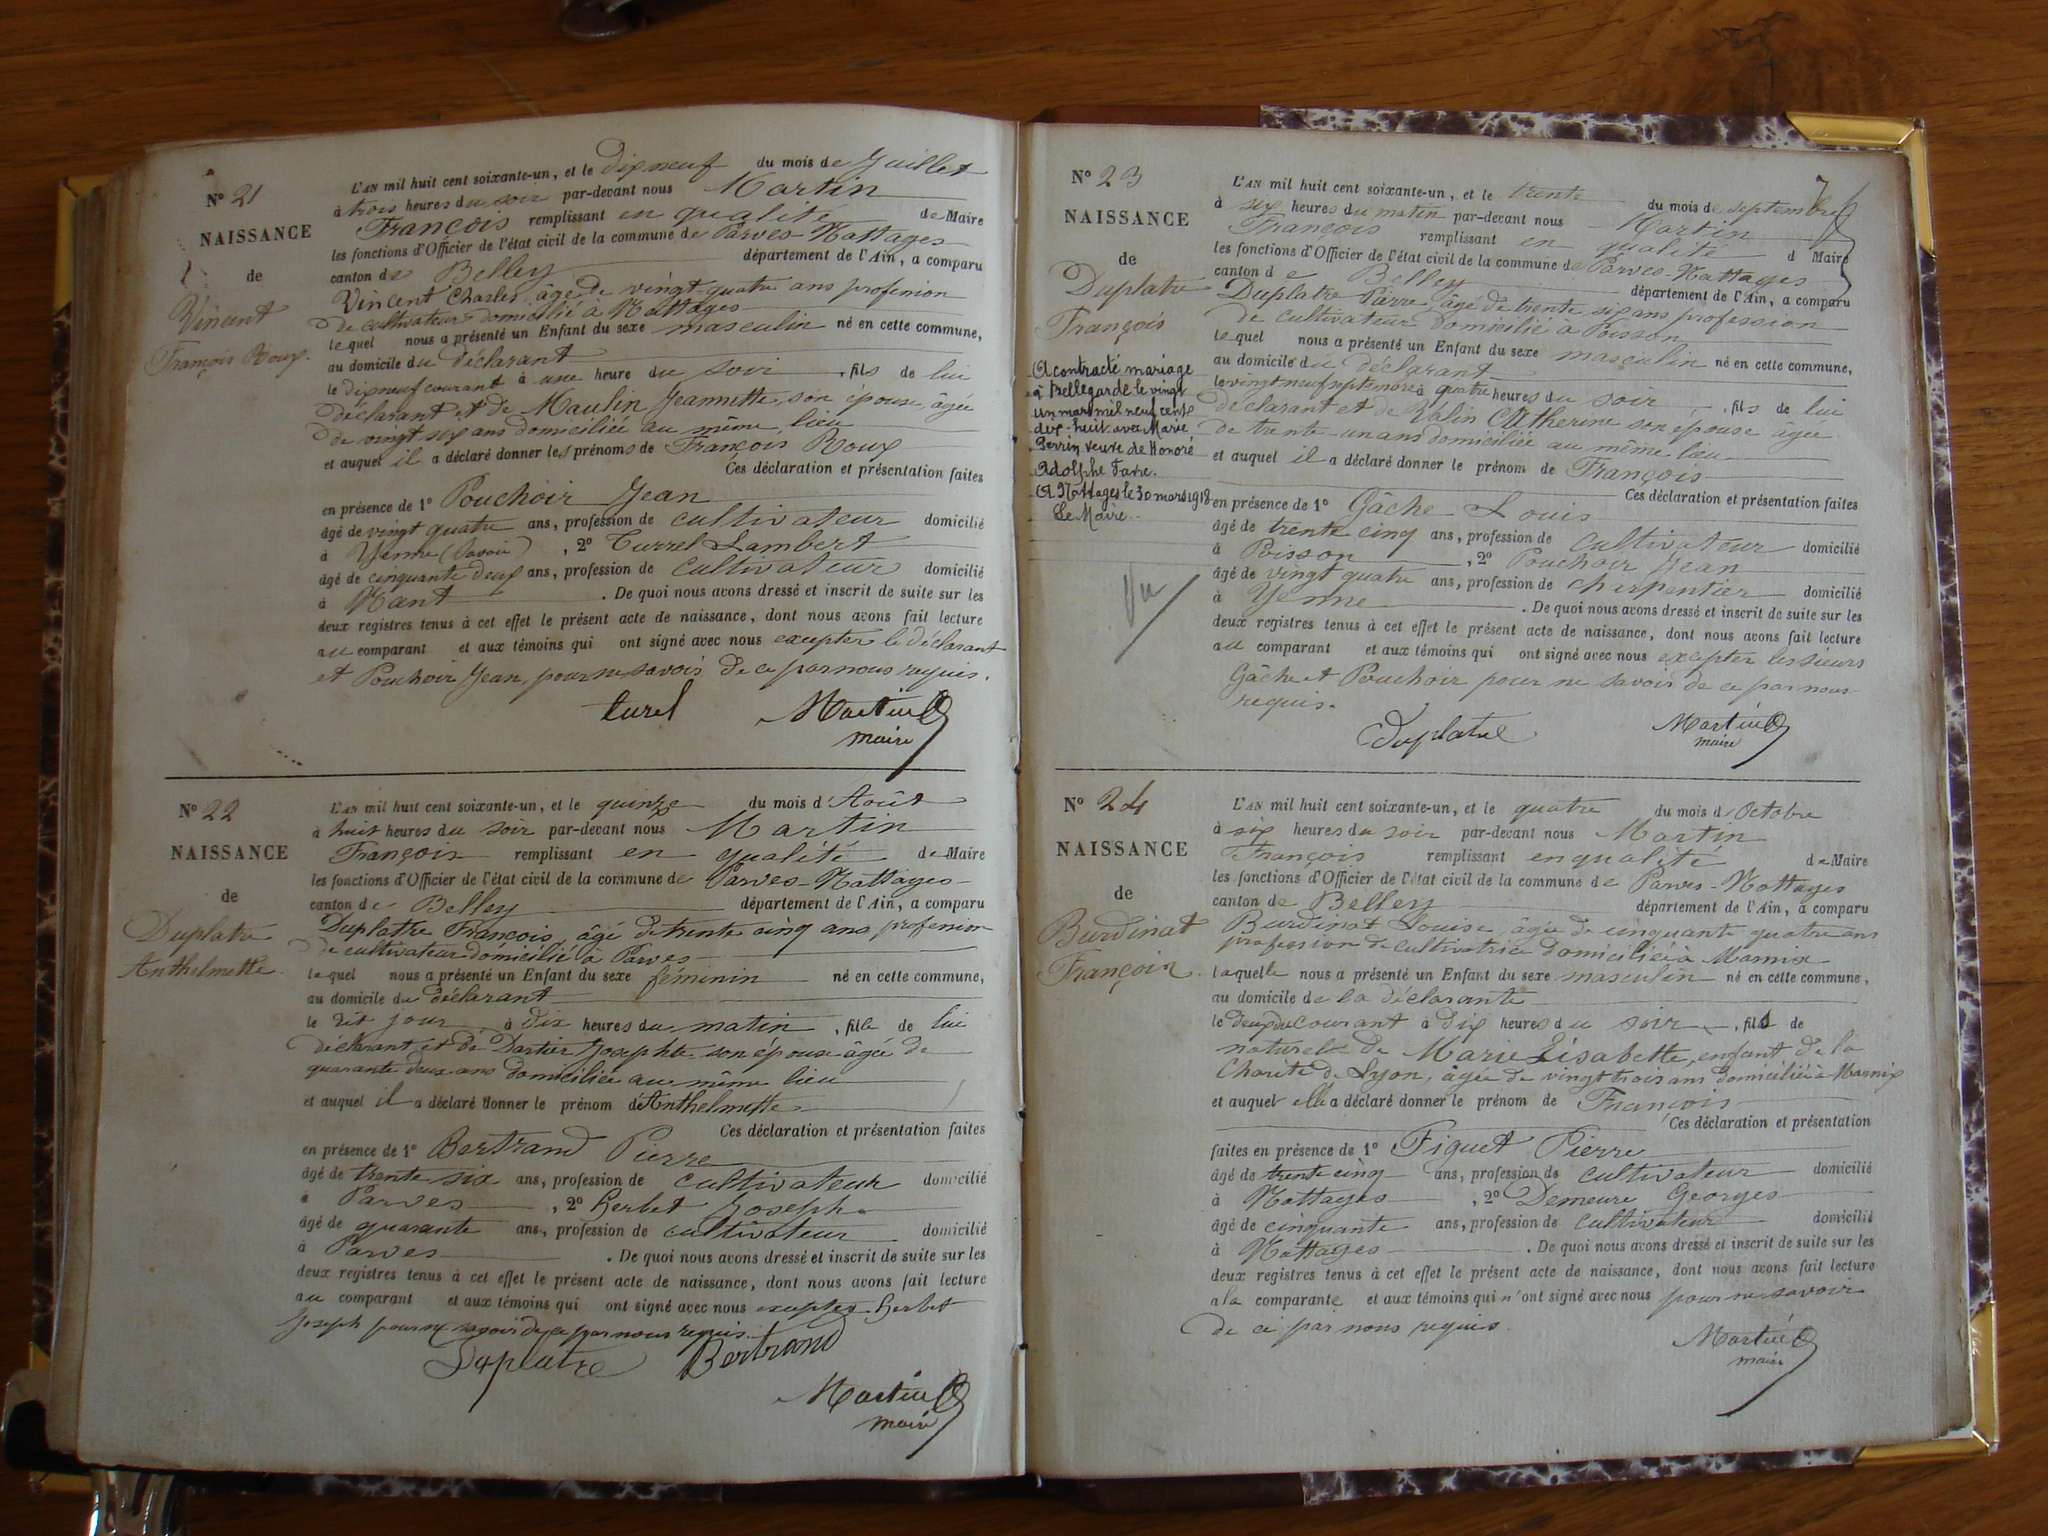 N° 21
NAISSANCE
de
Vincent
François Roux.
L'AN mil huit cent soixante-un, et le dix neuf du mois de Juillet
à trois heures du soir par-devant nous Martin
François remplissant en qualité de Maire
les fonctions d'Officier de l'état civil de la commune de Parves-Nattages
canton de Belley département de l'Ain, a comparu
Vincent Charles, âgé de vingt quatre ans profession
de cultivateur domicilié à Nattages
lequel nous a présenté un Enfant du sexe masculin né en cette commune,
au domicile du déclarant
le dix neuf courant à une heure du soir, fils de lui
déclarant et de Maulin Jeannette, son épouse, âgée
de vingt six ans domiciliée au même lieu
et auquel il a déclaré donner les prénoms de François Roux
Ces déclaration et présentation faites
en présence de 1° Pouchoir Jean
âgé de vingt quatre ans, profession de cultivateur domicilié
à Yenne (Savoie), 2° Turrel Lambert
âgé de cinquante deux ans, profession de cultivateur domicilié
à Nant. De quoi nous avons dressé et inscrit de suite sur les
deux registres tenus à cet effet le présent acte de naissance, dont nous avons fait lecture
au comparant et aux témoins qui ont signé avec nous excepter le déclarant
et Pouchoir Jean, pour ne savoir de ce par nous requis.
turel Martin
maire
N° 22
NAISSANCE
de
Duplatre
Anthelmette.
L'AN mil huit cent soixante-un, et le quinze du mois d'Août
à huit heures du soir par-devant nous Martin
François remplissant en qualité de Maire
les fonctions d'Officier de l'état civil de la commune de Parves-Nattages
canton de Belley département de l'Ain, a comparu
Duplatre François, âgé de trente cinq ans profession
de cultivateur domicilié à Parves
lequel nous a présenté un Enfant du sexe féminin né en cette commune,
au domicile du déclarant
le dit jour à dix heures du matin, fille de lui
déclarant et de Dartier Josephte son épouse âgée de
quarante deux ans domiciliée au même lieu
et auquel il a déclaré donner le prénom d'Anthelmette
Ces déclaration et présentation faites
en présence de 1° Bertrand Pierre
âgé de trente six ans, profession de cultivateur domicilié
à Parves, 2° Herbet Joseph
âgé de quarante ans, profession de cultivateur domicilié
à Parves. De quoi nous avons dressé et inscrit de suite sur les
deux registres tenus à cet effet le présent acte de naissance, dont nous avons fait lecture
au comparant et aux témoins qui ont signé avec nous excepter Herbet
Joseph pour ne savoir de ce par nous requis.
Duplatre Bertrand
Martin
maire
N° 23
NAISSANCE
de
Duplatre
François
A contracté mariage
à Bellegarde le vingt
un mars mil neuf cent
dix-huit avec Marie
Perrin veuve de Honoré
Adolphe Favre.
A Nattages le 30 mars 1918
Le Maire.
Vu
L'AN mil huit cent soixante-un, et le trente du mois de septembre
à six heures du matin par-devant nous Martin
François remplissant en qualité d Maire
les fonctions d'Officier de l'état civil de la commune de Parves-Nattages
canton de Belley département de l'Ain, a comparu
Duplatre Pierre, âgé de trente six ans profession
de cultivateur domicilié à Poisson
lequel nous a présenté un Enfant du sexe masculin né en cette commune,
au domicile du déclarant
le vingt neuf septembre à quatre heures du soir, fils de lui
déclarant et de Catherine son épouse âgée
de trente-un ans domiciliée au même lieu
et auquel il a déclaré donner le prénom de François
Ces déclaration et présentation faites
en présence de 1° Gâche Louis
âgé de trente cinq ans, profession de cultivateur domicilié
à Poisson, 2° Pouchoir Jean
âgé de vingt quatre ans, profession de charpentier domicilié
à Yenne. De quoi nous avons dressé et inscrit de suite sur les
deux registres tenus à cet effet le présent acte de naissance, dont nous avons fait lecture
au comparant et aux témoins qui ont signé avec nous excepter les sieurs
Gâche et Pouchoir pour ne savoir de ce par nous
requis.
Duplatre Martin
maire
N° 24
NAISSANCE
de
Burdinat
François.
L'AN mil huit cent soixante-un, et le quatre du mois d Octobre
à six heures du soir par-devant nous Martin
François remplissant en qualité de Maire
les fonctions d'Officier de l'état civil de la commune de Parves-Nattages
canton de Belley département de l'Ain, a comparu
Burdinat Louise, âgée de cinquante quatre ans
profession de cultivatrice domiciliée à Marnix
laquelle nous a présenté un Enfant du sexe masculin né en cette commune,
au domicile de la déclarante
le deux du courant à dix heures du soir, fils de
naturel de Marie Lisabette, enfant de la
Charité de Lyon, âgée de vingt trois ans domiciliée à Marnix
et auquel elle a déclaré donner le prénom de François
Ces déclaration et présentation
faites en présence de 1° Figuet Pierre
âgé de trente cinq ans, profession de cultivateur domicilié
à Nattages, 2° Demeure Georges
âgé de cinquante ans, profession de cultivateur domicilié
à Nattages. De quoi nous avons dressé et inscrit de suite sur les
deux registres tenus à cet effet le présent acte de naissance, dont nous avons fait lecture
a la comparante et aux témoins qui n'ont signé avec nous pour ne savoir
de ce par nous requis.
Martin
maire